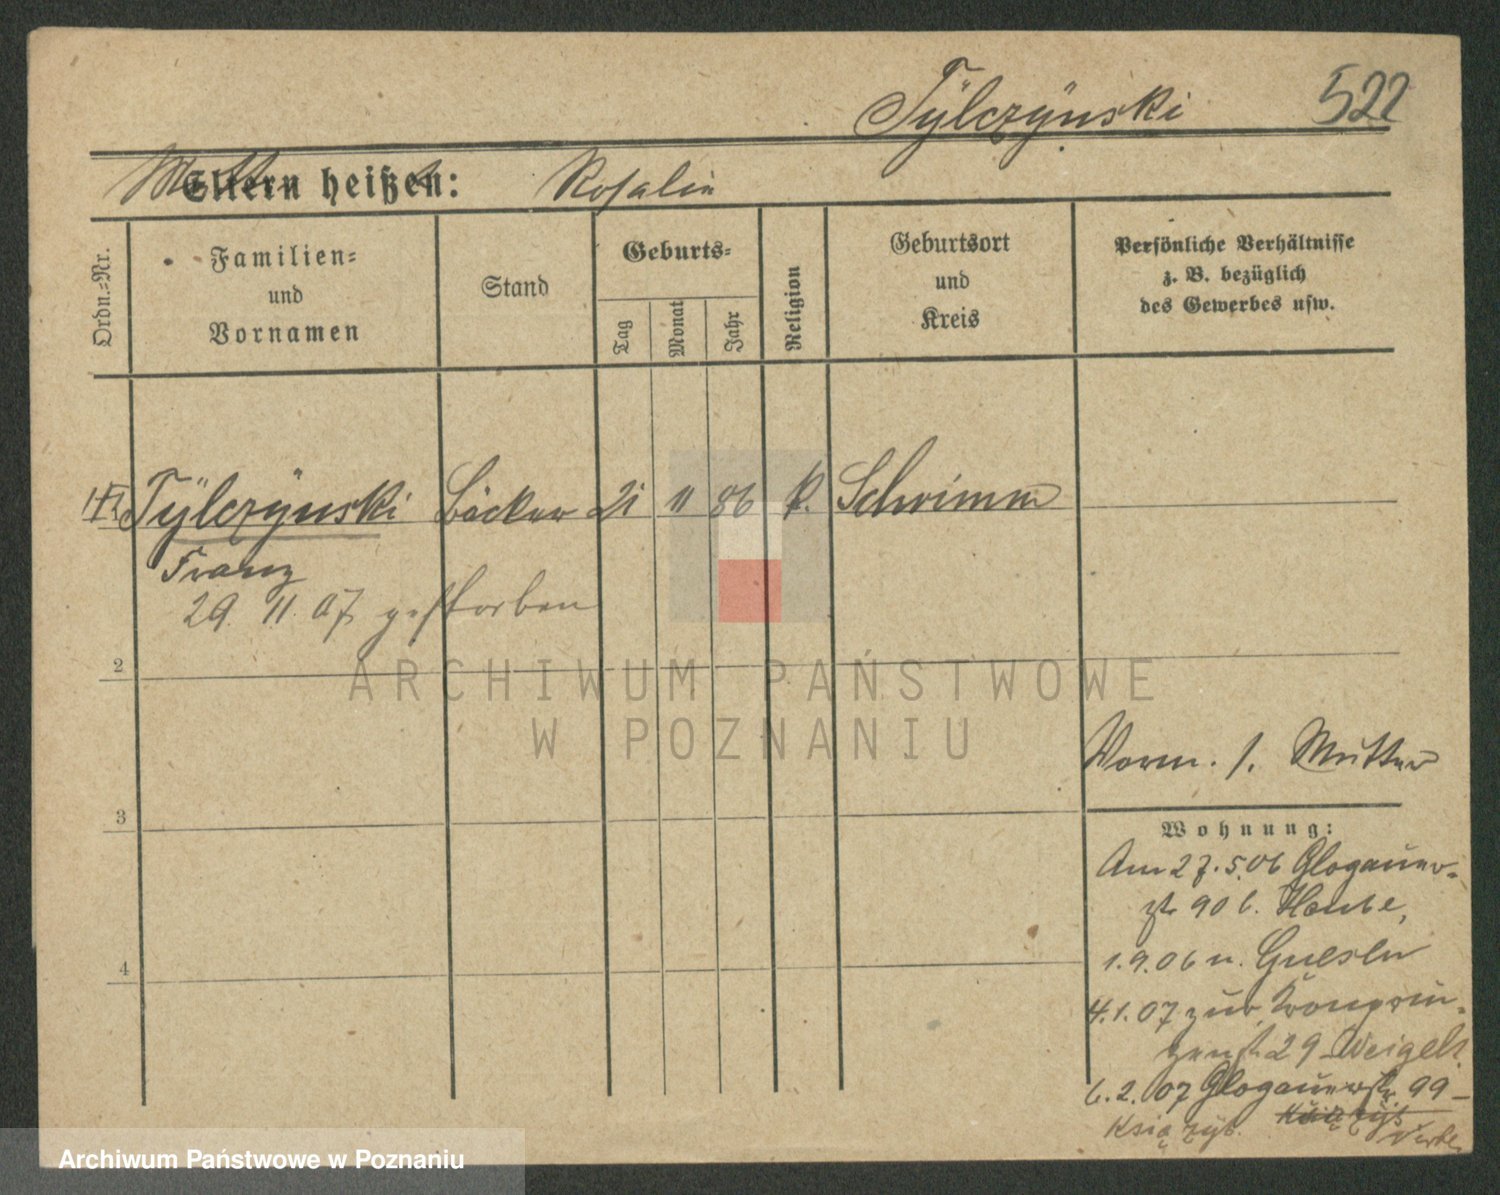 Tÿlczÿnski 522
Mutter
Eltern heißen: Rosalie
Ordn.=Nr.
Familien=
und
Vornamen
Stand
Geburts=
Tag
Monat
Jahr
Religion
Geburtsort
und
Kreis
Persönliche Verhältnisse
z. B. bezüglich
des Gewerbes usw.
Tÿlczÿnski Bäcker 21 11 86 k. Schrimm
Franz
29. 11. 07 gestorben
2
ARCHIWUM PAŃSTWOWE
W POZNANIU
Vorm. s. Mutter
3
Wohnung:
Am 27.5.06 Glogauer-
str 90 b.
1.9.06 n.
4
4.1.07 zur Kronprin-
zenst. 29 Weigelt
6.2.07 Glogauerstr. 99
Książyk.
Archiwum Państwowe w Poznaniu